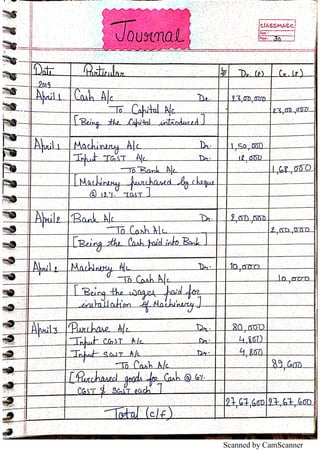 Journal
classmate
Date
Page 30
Date Particular Dr. (₹) Cr. (₹)
2019
April 1 Cash A/c Dr. 23,00,000
To Capital A/c 23,00,000
[Being the Capital introduced]
April 1 Machinery A/c Dr. 1,50,000
Input IGST A/c Dr. 18,000
To Bank A/c 1,68,000
[Machinery purchased by cheque
@ 12% IGST]
April 2 Bank A/c Dr. 2,00,000
To Cash A/c 2,00,000
[Being the Cash paid into Bank]
April 2 Machinery A/c Dr. 10,000
To Cash A/c 10,000
[Being the wages paid for
installation of Machinery]
April 3 Purchase A/c Dr. 80,000
Input CGST A/c Dr. 4,800
Input SGST A/c Dr. 4,800
To Cash A/c 89,600
[Purchased goods for Cash @ 6%
CGST & SGST each]
Total (c/f) 27,67,600 27,67,600
Scanned by CamScanner